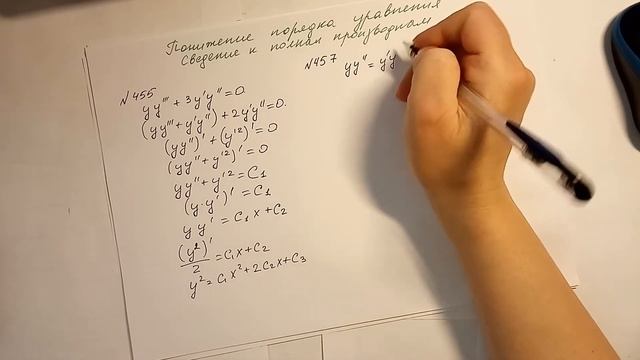 Понижение порядка уравнения
Сведение к полным производным
N 455
yy''' + 3y'y'' = 0.
(yy''' + y'y'') + 2y'y'' = 0.
(yy'')' + (y'²)' = 0
(yy'' + y'²)' = 0
yy'' + y'² = C₁
(y·y')' = C₁
yy' = C₁x + C₂
(y²)'/2 = C₁x + C₂
y² = C₁x² + 2C₂x + C₃
N 457 yy'' = y'y